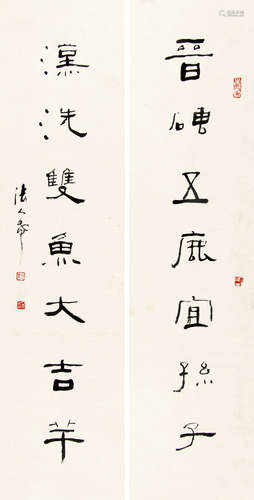 晉磚五鹿宜孫子
漢洗雙魚大吉羊
張人希